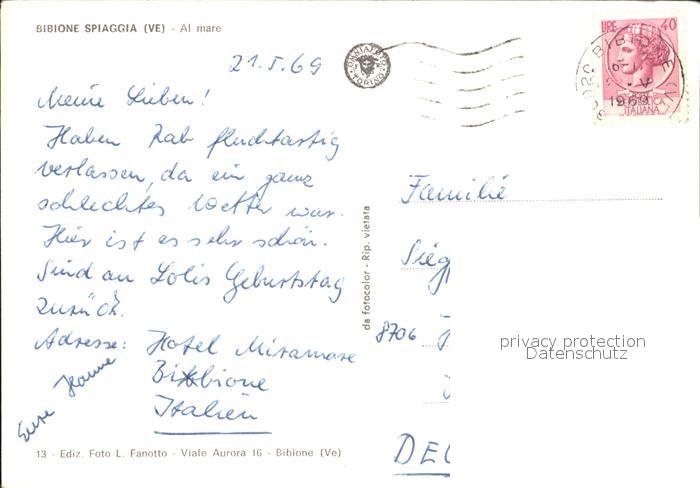 BIBIONE SPIAGGIA (VE) - Al mare
21.5.69
Meine Lieben!
Haben Rab fluchtartig
verlassen, da ein ganz
schlechtes Wetter war.
Hier ist es sehr schön.
Sind an Lolis Geburtstag
zurück.
Adresse: Hotel Miramare
Bibbione
Italien
Eure
13 - Ediz. Foto L. Fanotto - Viale Aurora 16 - Bibione (Ve)
da fotocolor - Rip. vietata
LIRE 40
1969
ITALIANA
TORINO
Familie
8706
privacy protection
Datenschutz